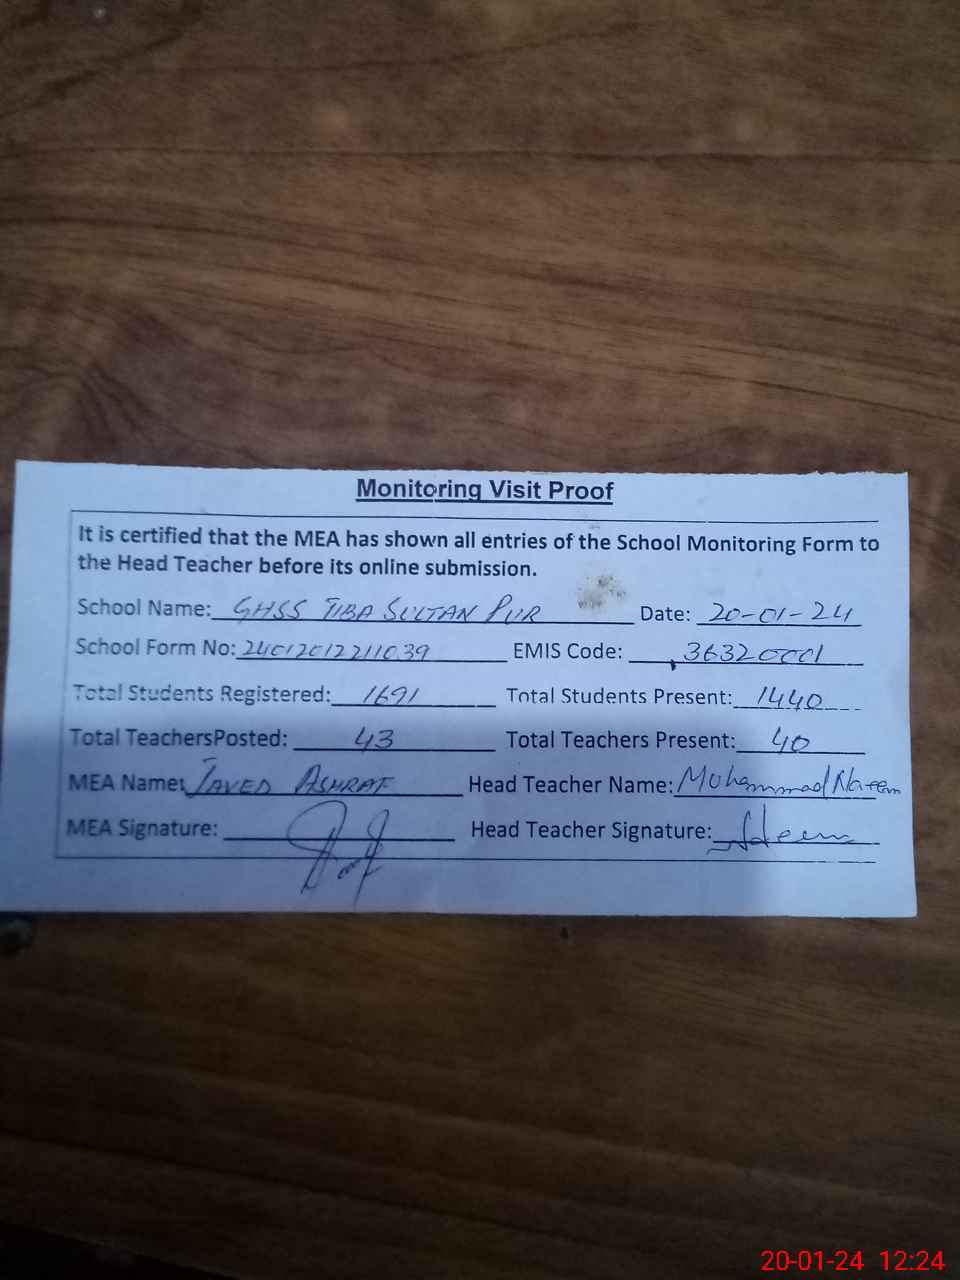 Monitoring Visit Proof
It is certified that the MEA has shown all entries of the School Monitoring Form to
the Head Teacher before its online submission.
School Name: GHSS TIBA SULTAN PUR Date: 20-01-24
School Form No: 24012012211039 EMIS Code: 36320001
Total Students Registered: 1691 Total Students Present: 1440
Total TeachersPosted: 43 Total Teachers Present: 40
MEA Name: JAVED ASHRAF Head Teacher Name: Mohammad Naeem
MEA Signature: Head Teacher Signature:
20-01-24 12:24